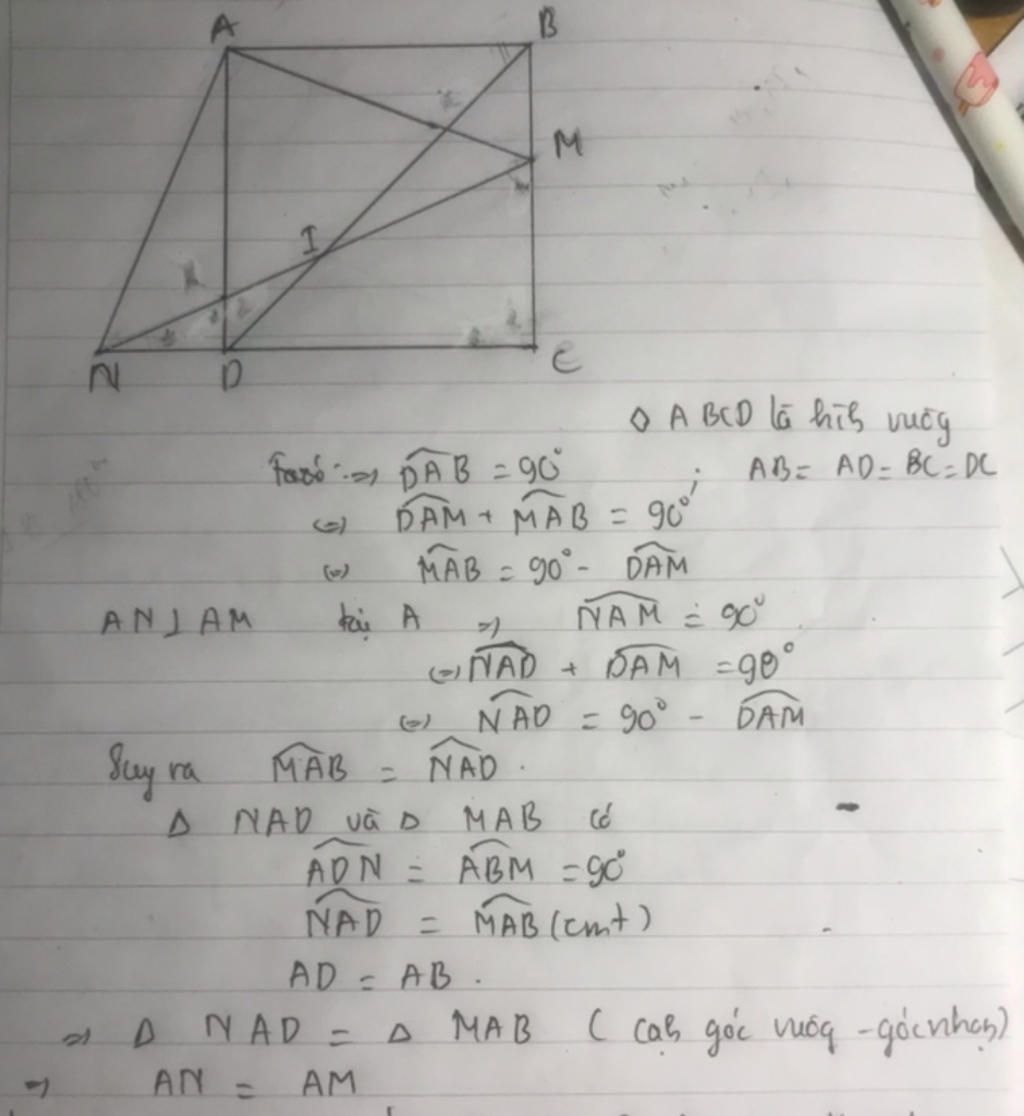 A B
M
I
N D C
◊ ABCD là hình vuông
Ta có: => \widehat{DAB} = 90° ; AB = AD = BC = DC
(=) \widehat{DAM} + \widehat{MAB} = 90°
(=) \widehat{MAB} = 90° - \widehat{DAM}
AN ⊥ AM tại A => \widehat{NAM} = 90°
(=) \widehat{NAD} + \widehat{DAM} = 90°
(=) \widehat{NAD} = 90° - \widehat{DAM}
Suy ra \widehat{MAB} = \widehat{NAD}.
Δ NAD và Δ MAB có
\widehat{ADN} = \widehat{ABM} = 90°
\widehat{NAD} = \widehat{MAB} (cmt)
AD = AB.
=> Δ NAD = Δ MAB (cạnh góc vuông - góc nhọn)
=> AN = AM